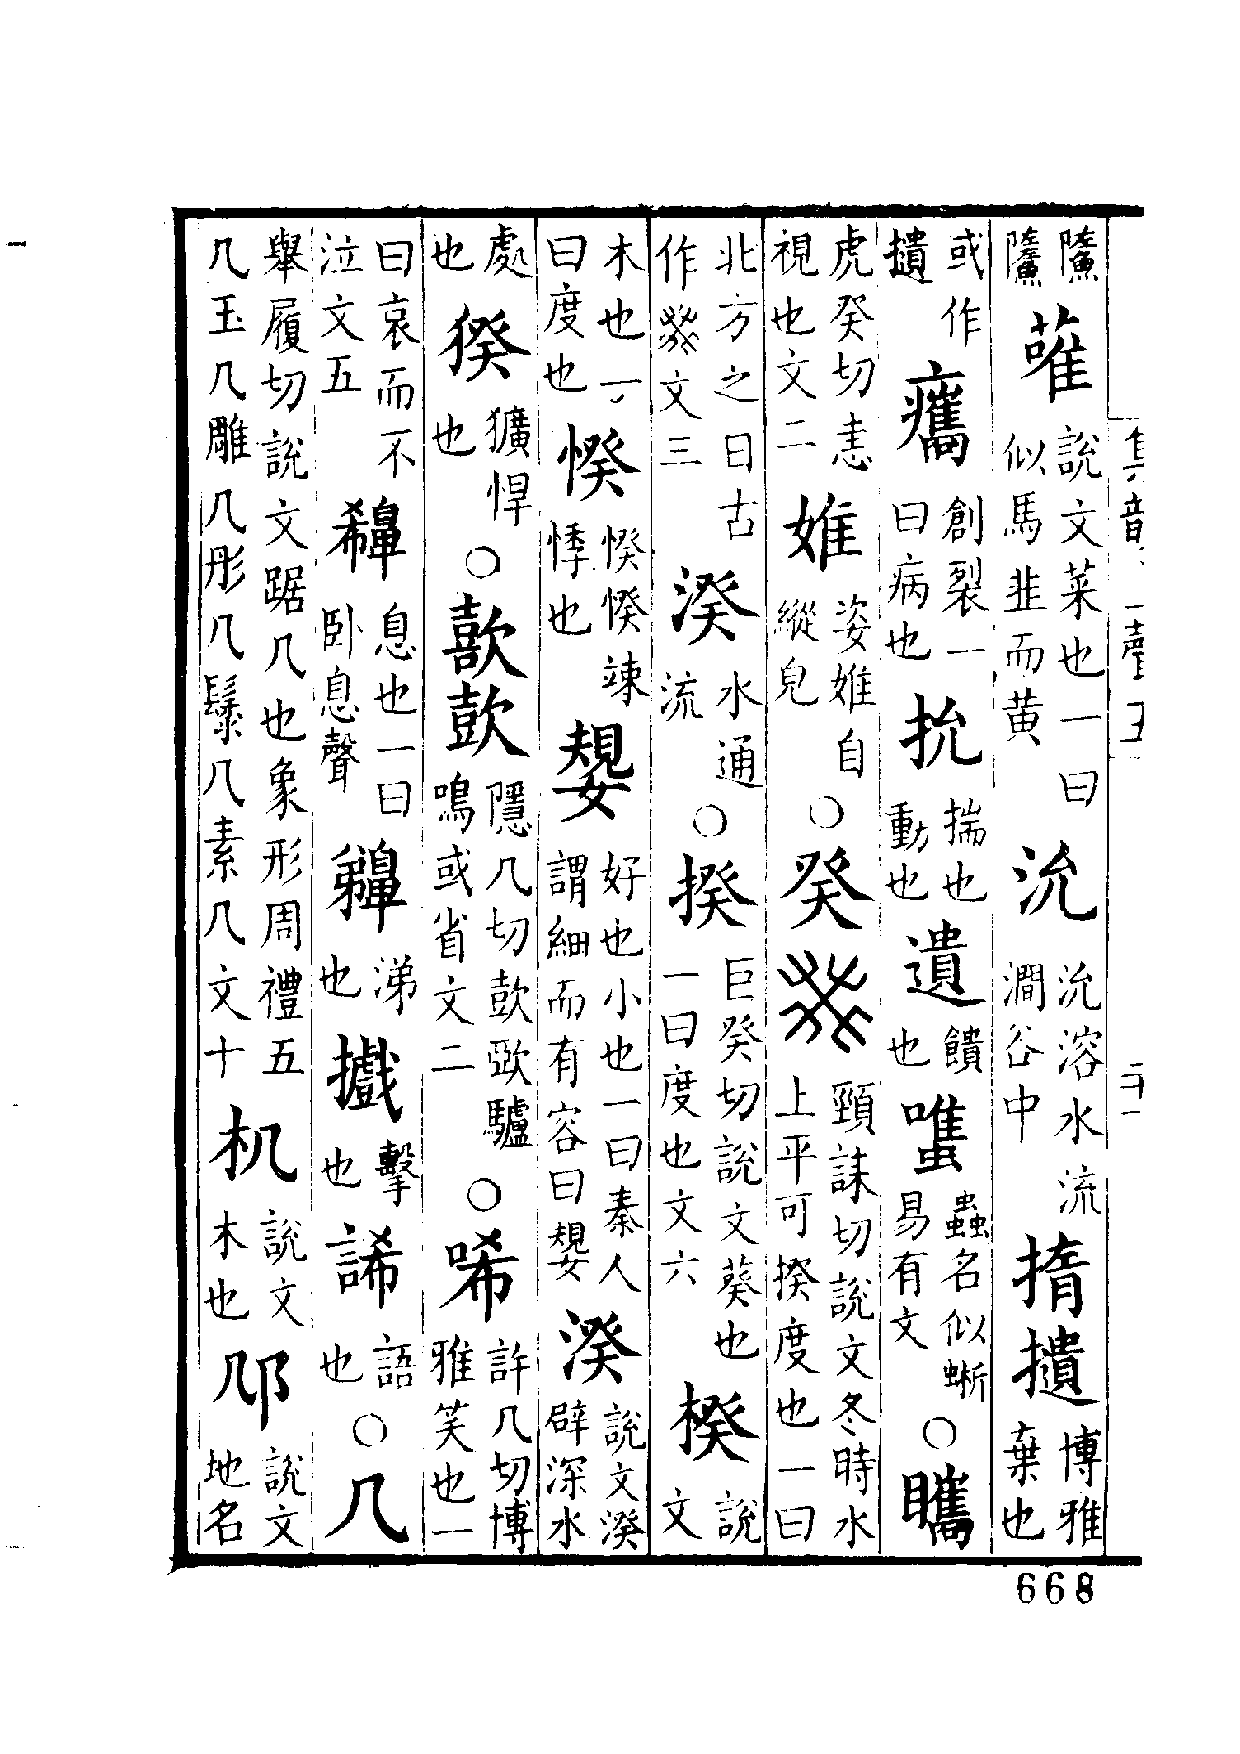 集韻上聲五　二十一
蓶說文菜也一曰似馬韭而黃沇沇溶水流澗谷中博雅棄也
或作創裂一曰病也抁揣也動也遺饋也蟲名似蜥易有文○
虎癸切恚視也文二婎姿婎自縱皃○癸頸誄切說文冬時水上平可揆度也一曰
北方之日古作文三湀水通流○揆巨癸切說文葵也一曰度也文六楑說文
木也一曰度也悚悸也嫢好也小也一曰秦人謂細而有容曰嫢湀說文湀辟深水
處也猤獷悍也○隱几切驢鳴或省文二○唏許几切博雅笑也一
曰哀而不泣文五息也一曰臥息聲涕也擊也語也○几
舉履切說文踞几也象形周禮五几玉几雕几彤几髹几素几文十机說文木也說文地名
668